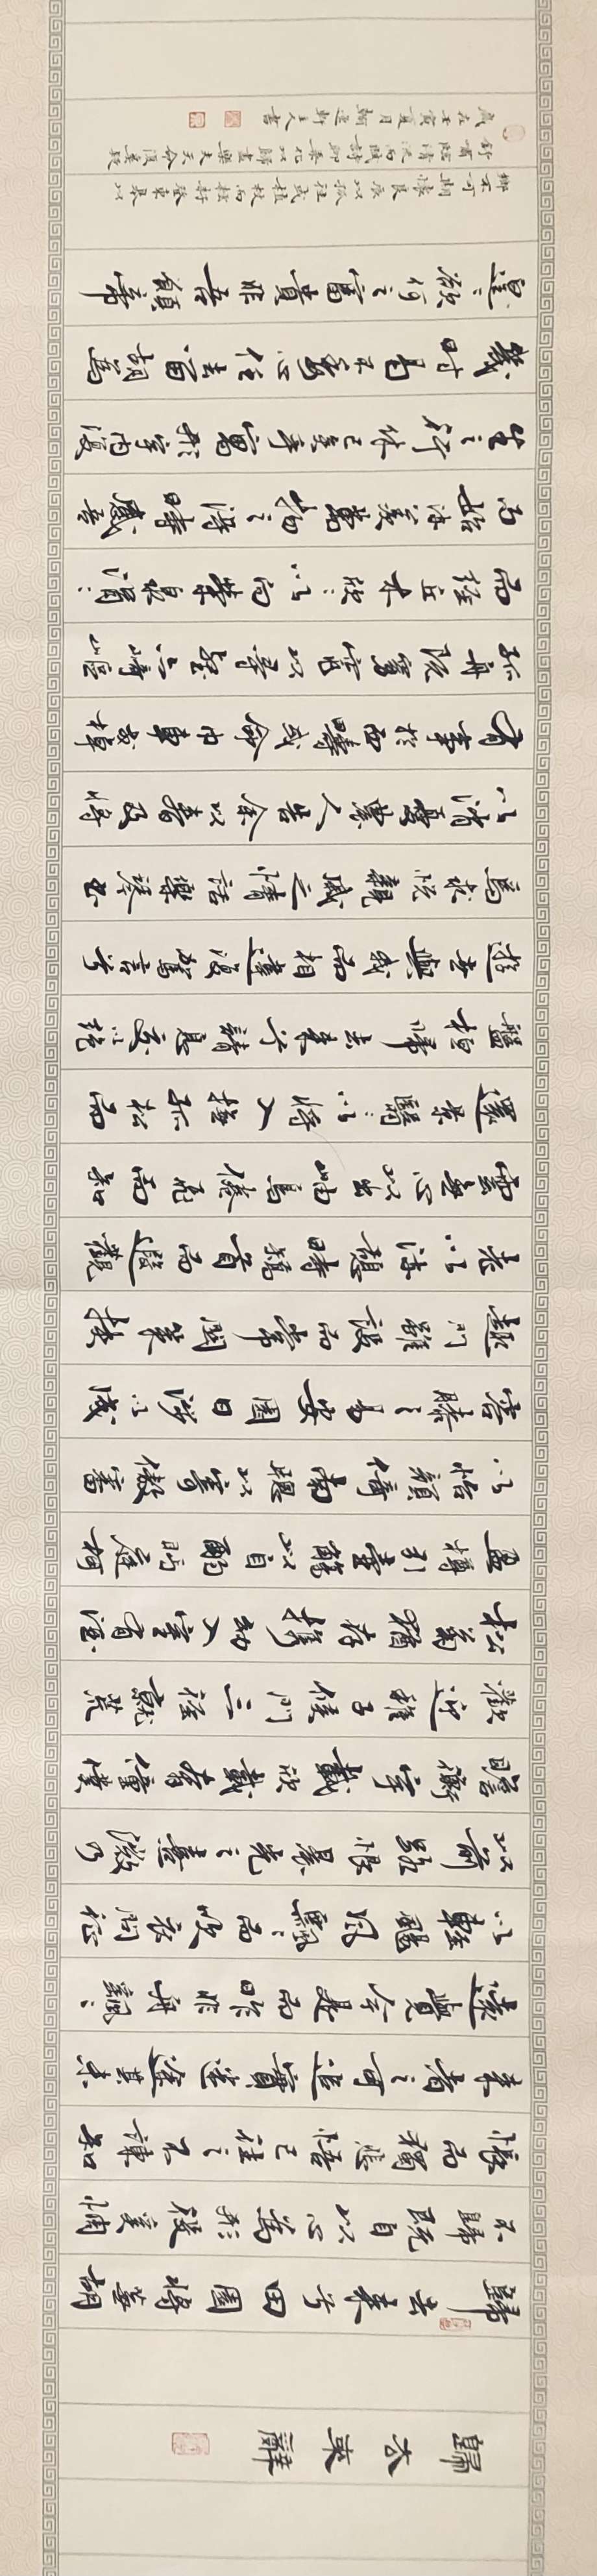 歸去來辭
歸去來兮田園將蕪胡
不歸既自以心為形役奚惆
悵而獨悲悟已往之不諫知
來者之可追實迷途其未
遠覺今是而昨非舟飄〻
以輕颺風飄〻而吹衣問征
以前路恨晨光之熹微乃
瞻衡宇載欣載奔僮僕
歡迎稚子候門三徑就荒
松菊猶存攜幼入室有酒
盈樽引壺觴以自酌眄庭柯
以怡顏倚南窗以寄傲審
容膝之易安園日涉以成
趣門雖設而常關策扶
老以流憩時矯首而遐觀
雲無心以出岫鳥倦飛而知
還景翳〻以將入撫孤松而
盤桓歸去來兮請息交以絕
遊世與我而相違復駕言兮
焉求悅親戚之情話樂琴書
以消憂農人告余以春及將
有事於西疇或命巾車或棹
孤舟既窈窕以尋壑亦崎嶇
而經丘木欣〻以向榮泉涓〻
而始流羨萬物之得時感吾
生之行休已矣乎寓形宇內復
幾時曷不委心任去留胡為
遑〻欲何之富貴非吾願帝
鄉不可期懷良辰以孤往或植杖而耘耔登東皋以
舒嘯臨清流而賦詩聊乘化以歸盡樂夫天命復奚疑
歲在壬寅夏月翰逸軒主人書